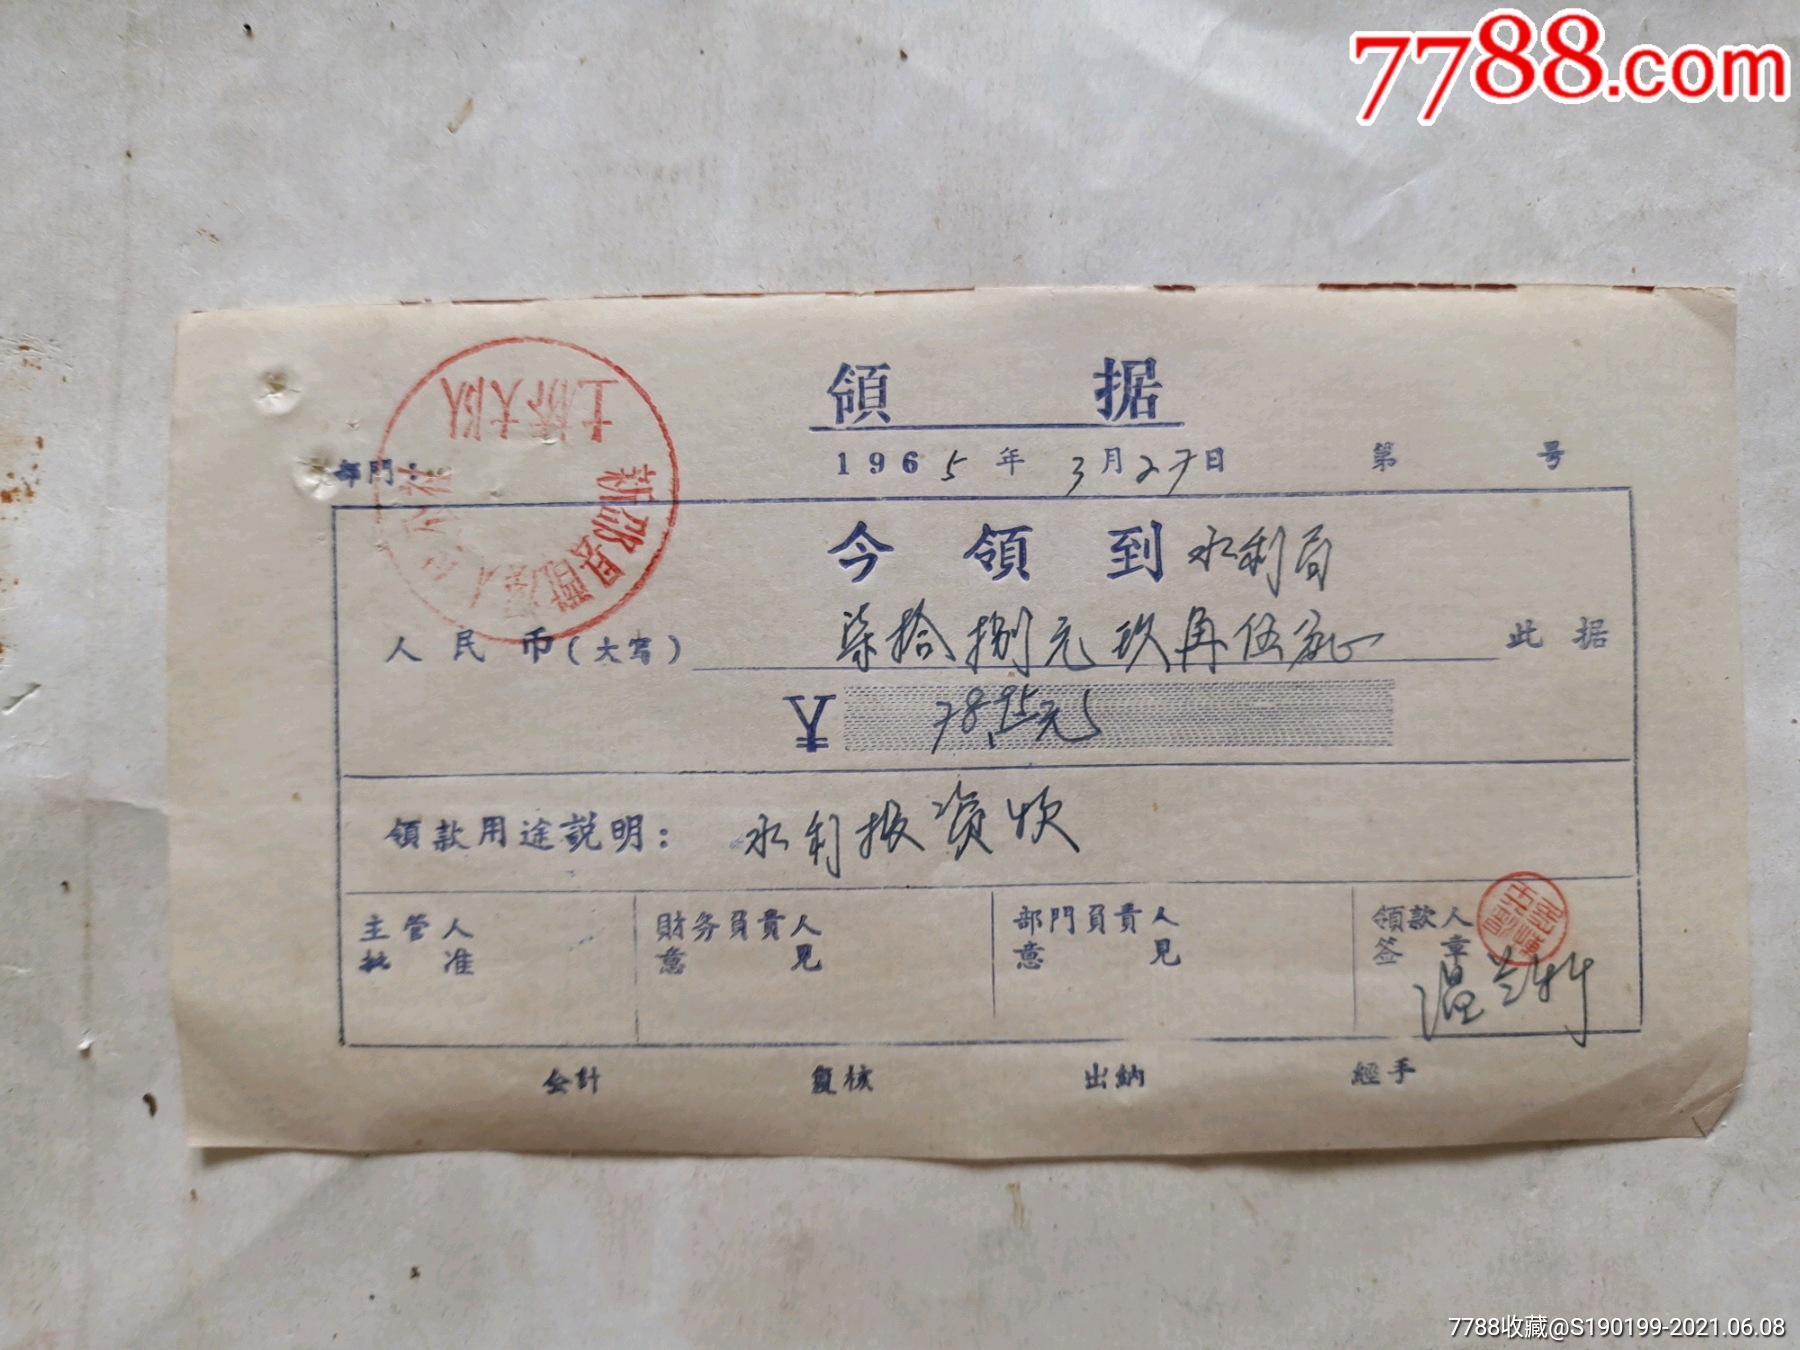 7788.com
領 据
土桥大队
新邵县
部門：
1965年3月27日 第 号
今領到 水利局
人民币(大写) 柒拾捌元玖角伍分正 此据
¥ 78.95元
領款用途説明： 水利投资款
主管人 財务負責人 部門負責人 領款人
批准 意見 意見 签章
温
会計 复核 出納 經手
7788收藏@S190199-2021.06.08